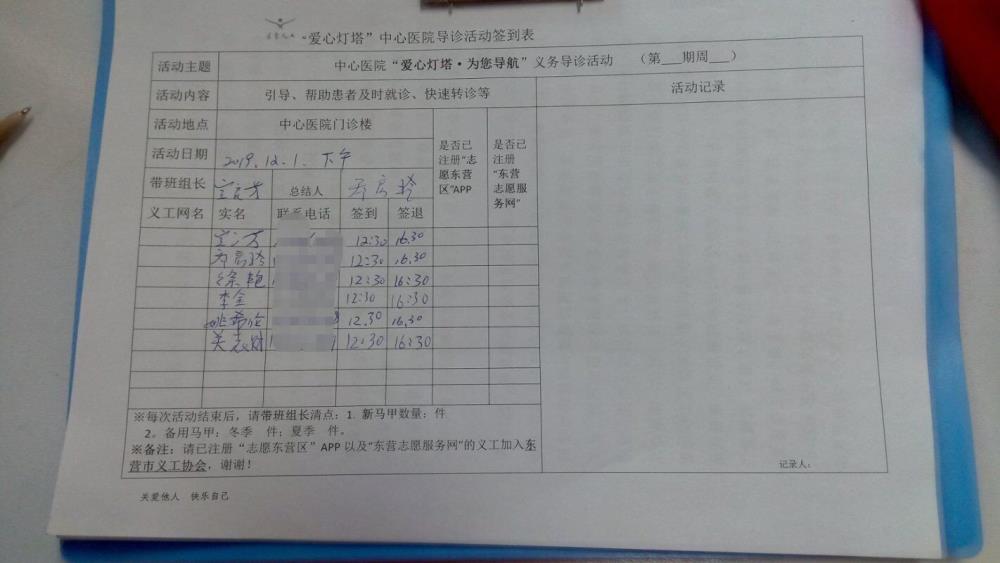 “爱心灯塔”中心医院导诊活动签到表
活动主题 中心医院“爱心灯塔·为您导航”义务导诊活动 （第___期周___）
活动内容 引导、帮助患者及时就诊、快速转诊等 活动记录
活动地点 中心医院门诊楼
是否已注册“志愿东营区”APP
是否已注册“东营志愿服务网”
活动日期 2019.12.1. 下午
带班组长 总结人
义工网名 实名 联系电话 签到 签退
12:30 16.30
12:30 16.30
徐艳 12:30 16:30
李全 12:30 16:30
姚希伦 12.30 16.30
关志财 12:30 16:30
※每次活动结束后，请带班组长清点：1. 新马甲数量：件
2。备用马甲：冬季 件；夏季 件。
※备注：请已注册“志愿东营区”APP以及“东营志愿服务网”的义工加入东
营市义工协会，谢谢！
记录人：
关爱他人 快乐自己